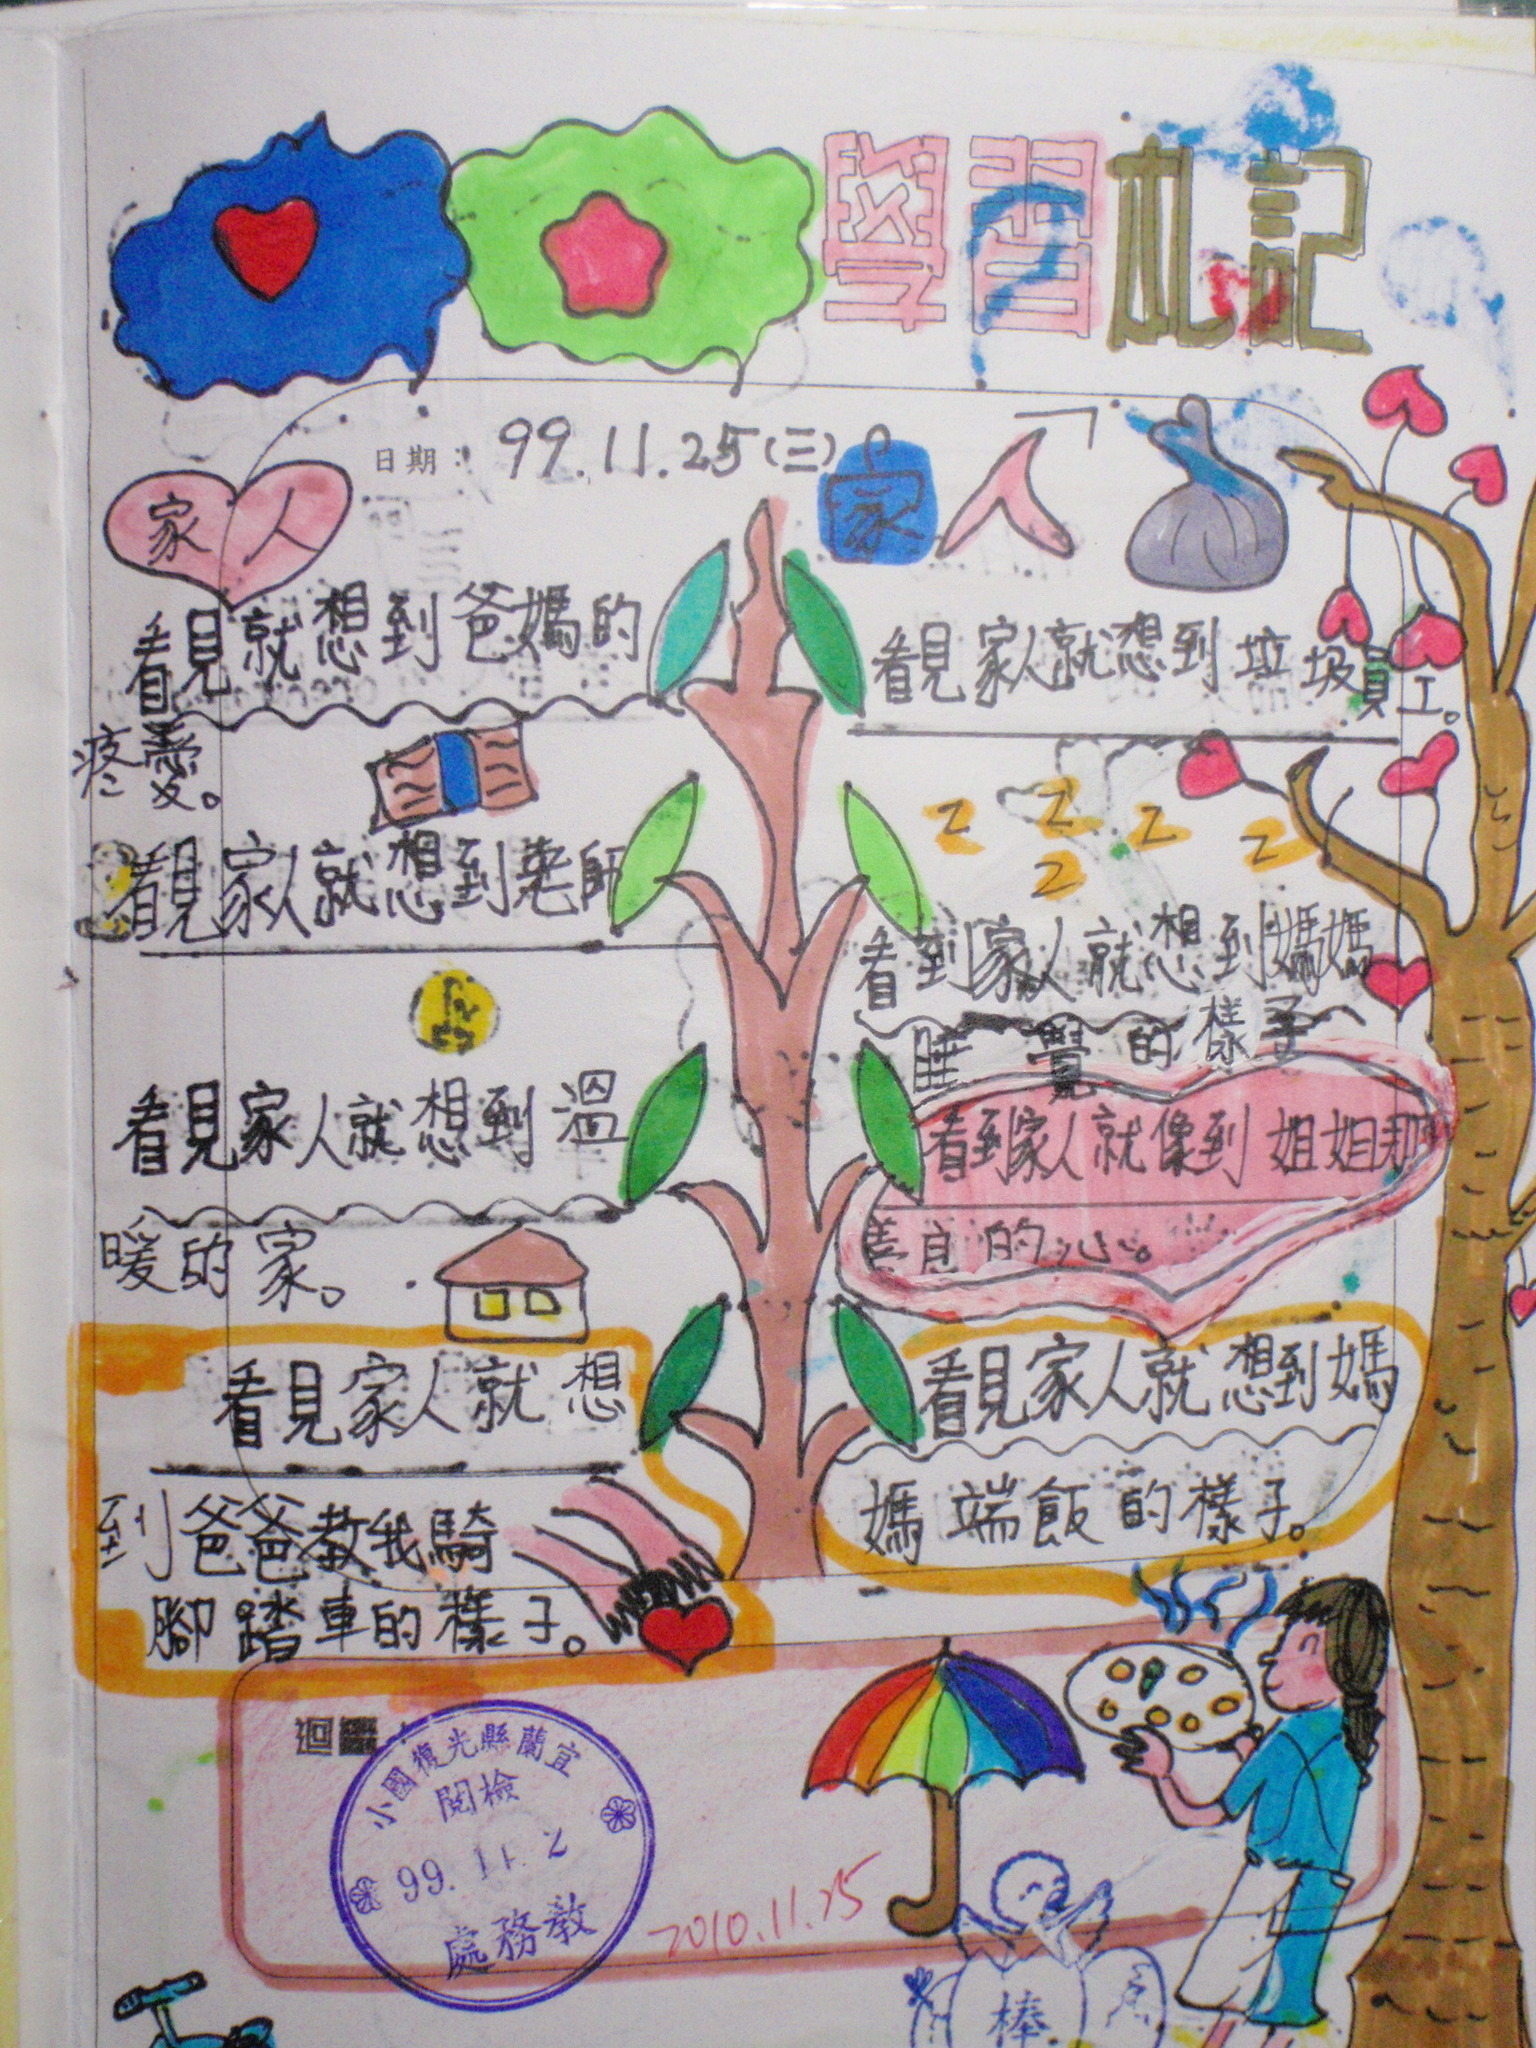 學習札記
日期：99.11.25(三)
家人
家人
看見就想到爸媽的
疼愛。
看見家人就想到老師
看見家人就想到溫
暖的家。
看見家人就想
到爸爸教我騎
腳踏車的樣子。
看見家人就想到垃圾員工。
z z z z z
看到家人就想到媽媽
睡覺的樣子
看到家人就像到姐姐那
善良的心。
看見家人就想到媽
媽端飯的樣子。
迴響
小國復光縣蘭宜
閱檢
99.11.2
處務教
2010.11.25
棒